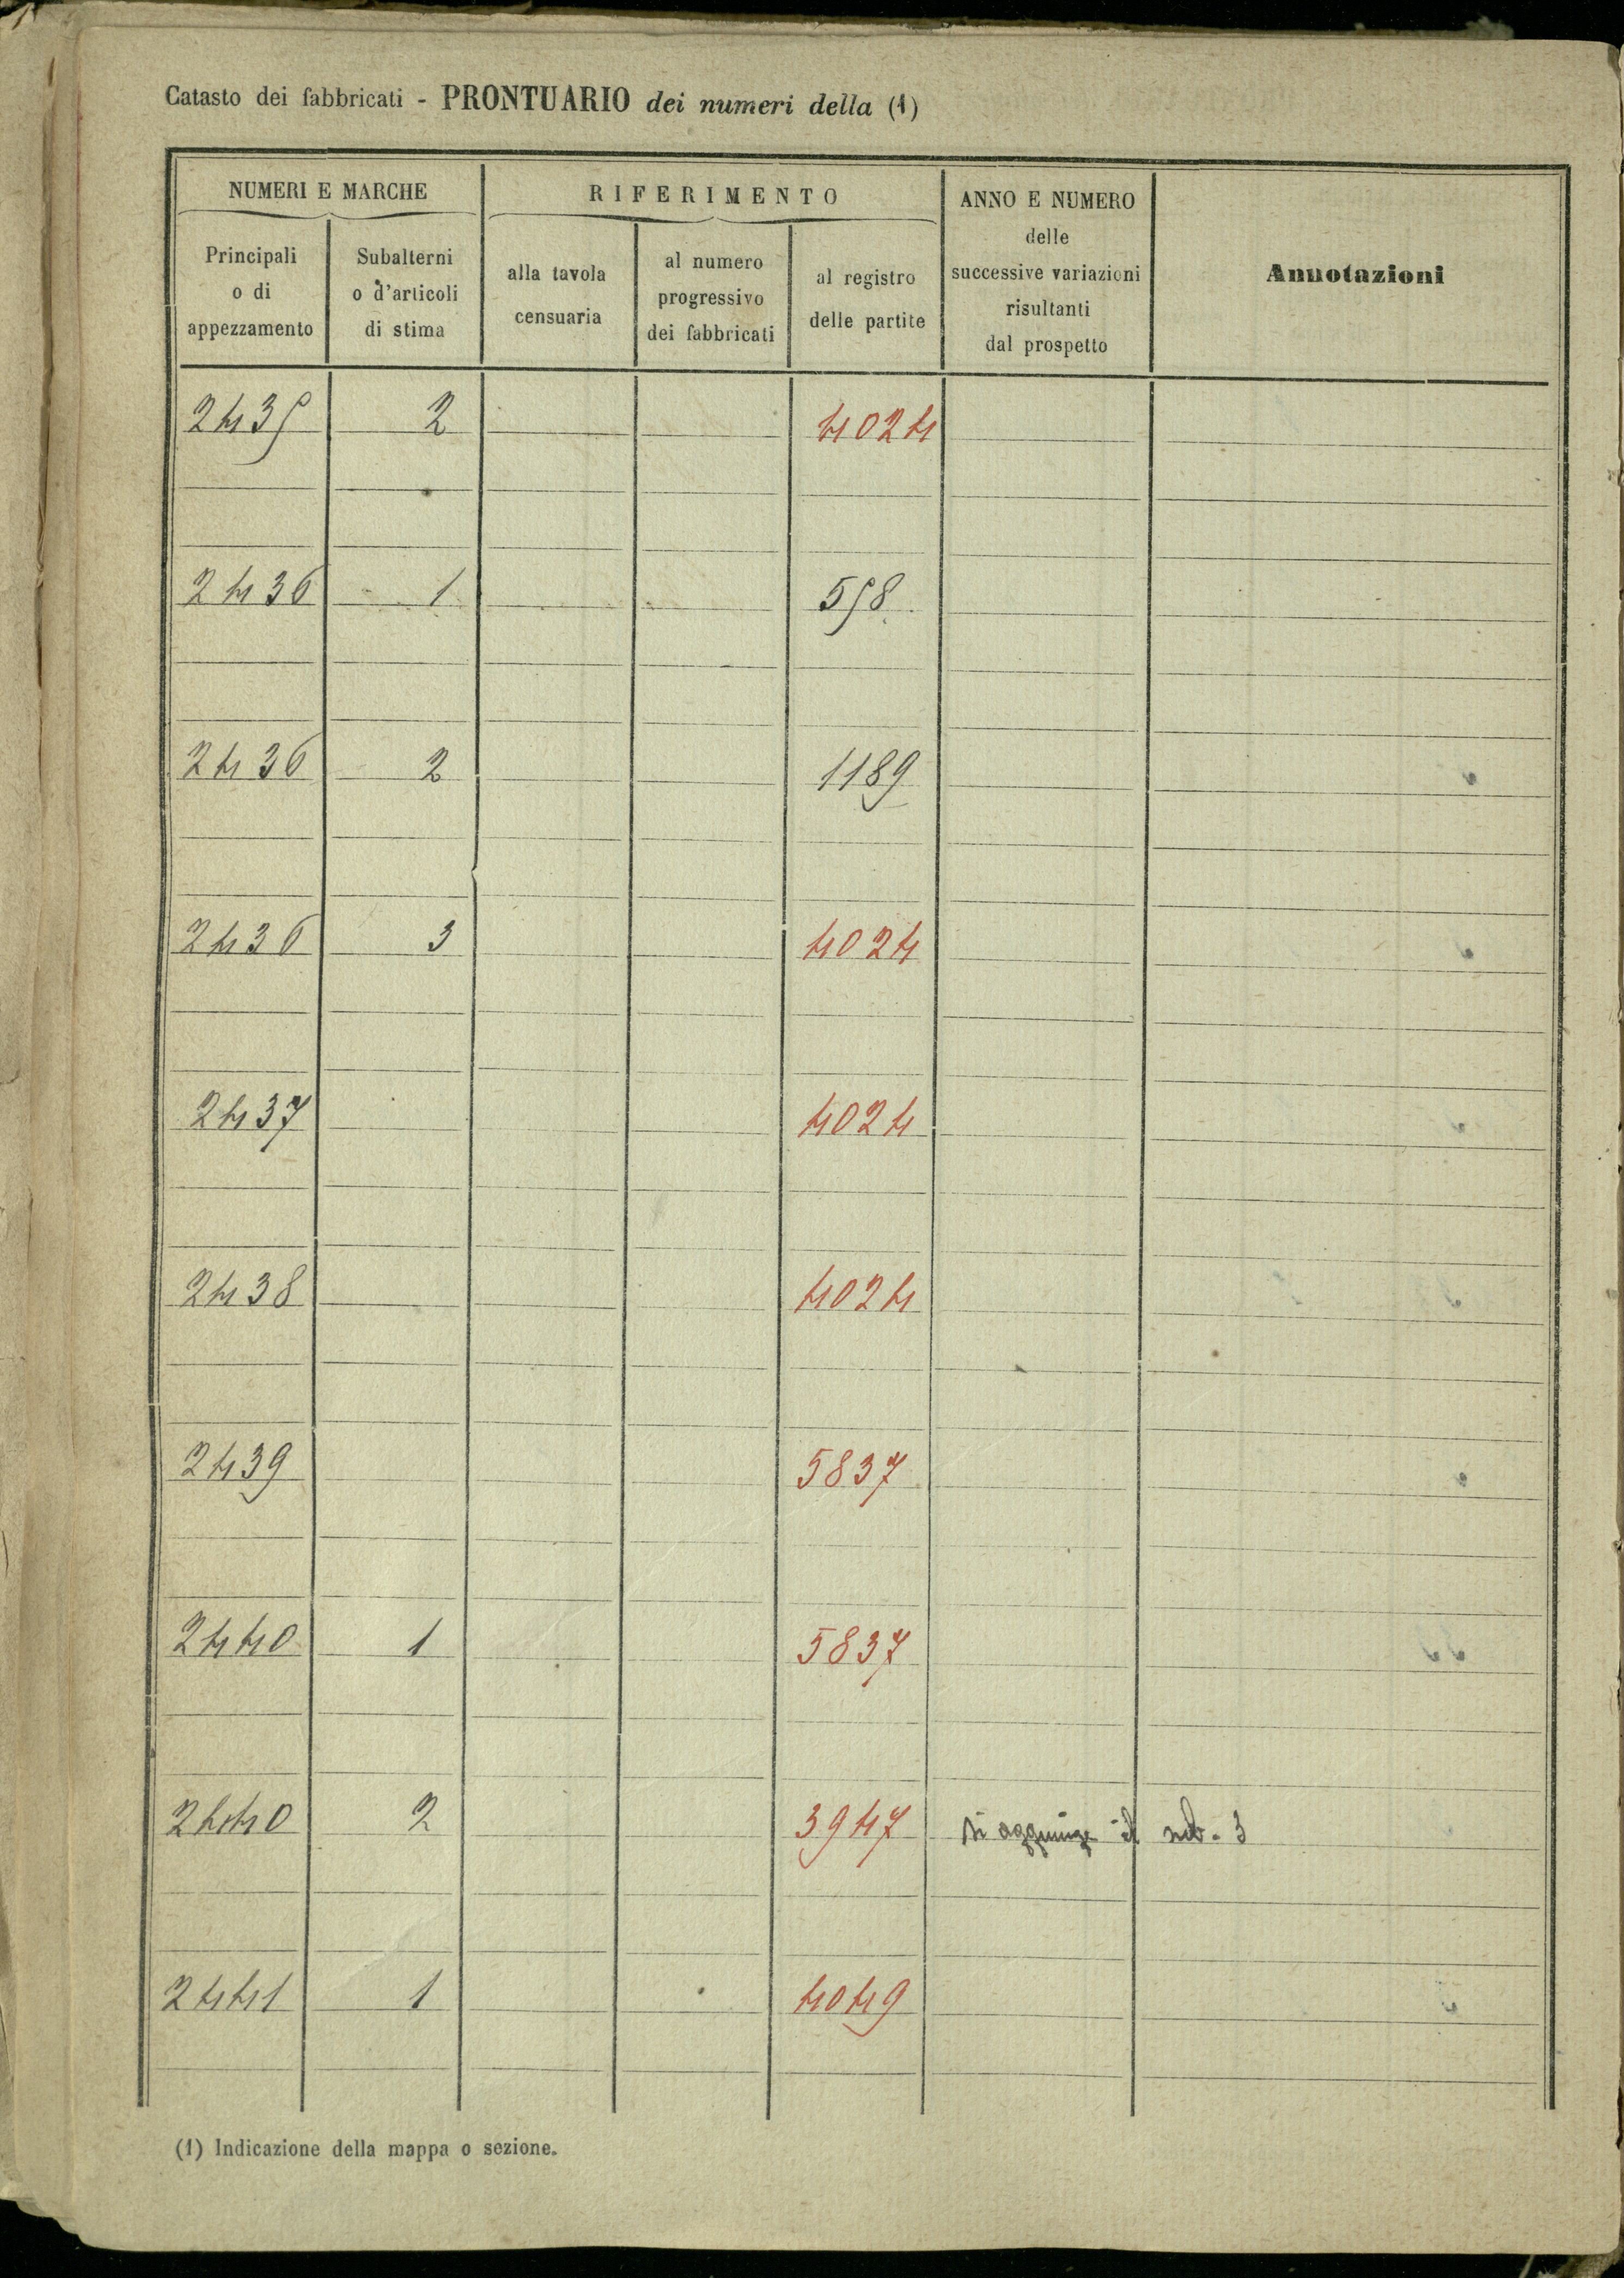 Catasto dei fabbricati - PRONTUARIO dei numeri della (1)
NUMERI E MARCHE
RIFERIMENTO
ANNO E NUMERO
delle
successive variazioni
risultanti
dal prospetto
Annotazioni
Principali
o di
appezzamento
Subalterni
o d'articoli
di stima
alla tavola
censuaria
al numero
progressivo
dei fabbricati
al registro
delle partite
2435 2 4024
2436 1 558
2436 2 1189
2436 3 4024
2437 4024
2438 4024
2439 5837
2440 1 5837
2440 2 3947 si aggiunge il sub. 3
2441 1 4049
(1) Indicazione della mappa o sezione.